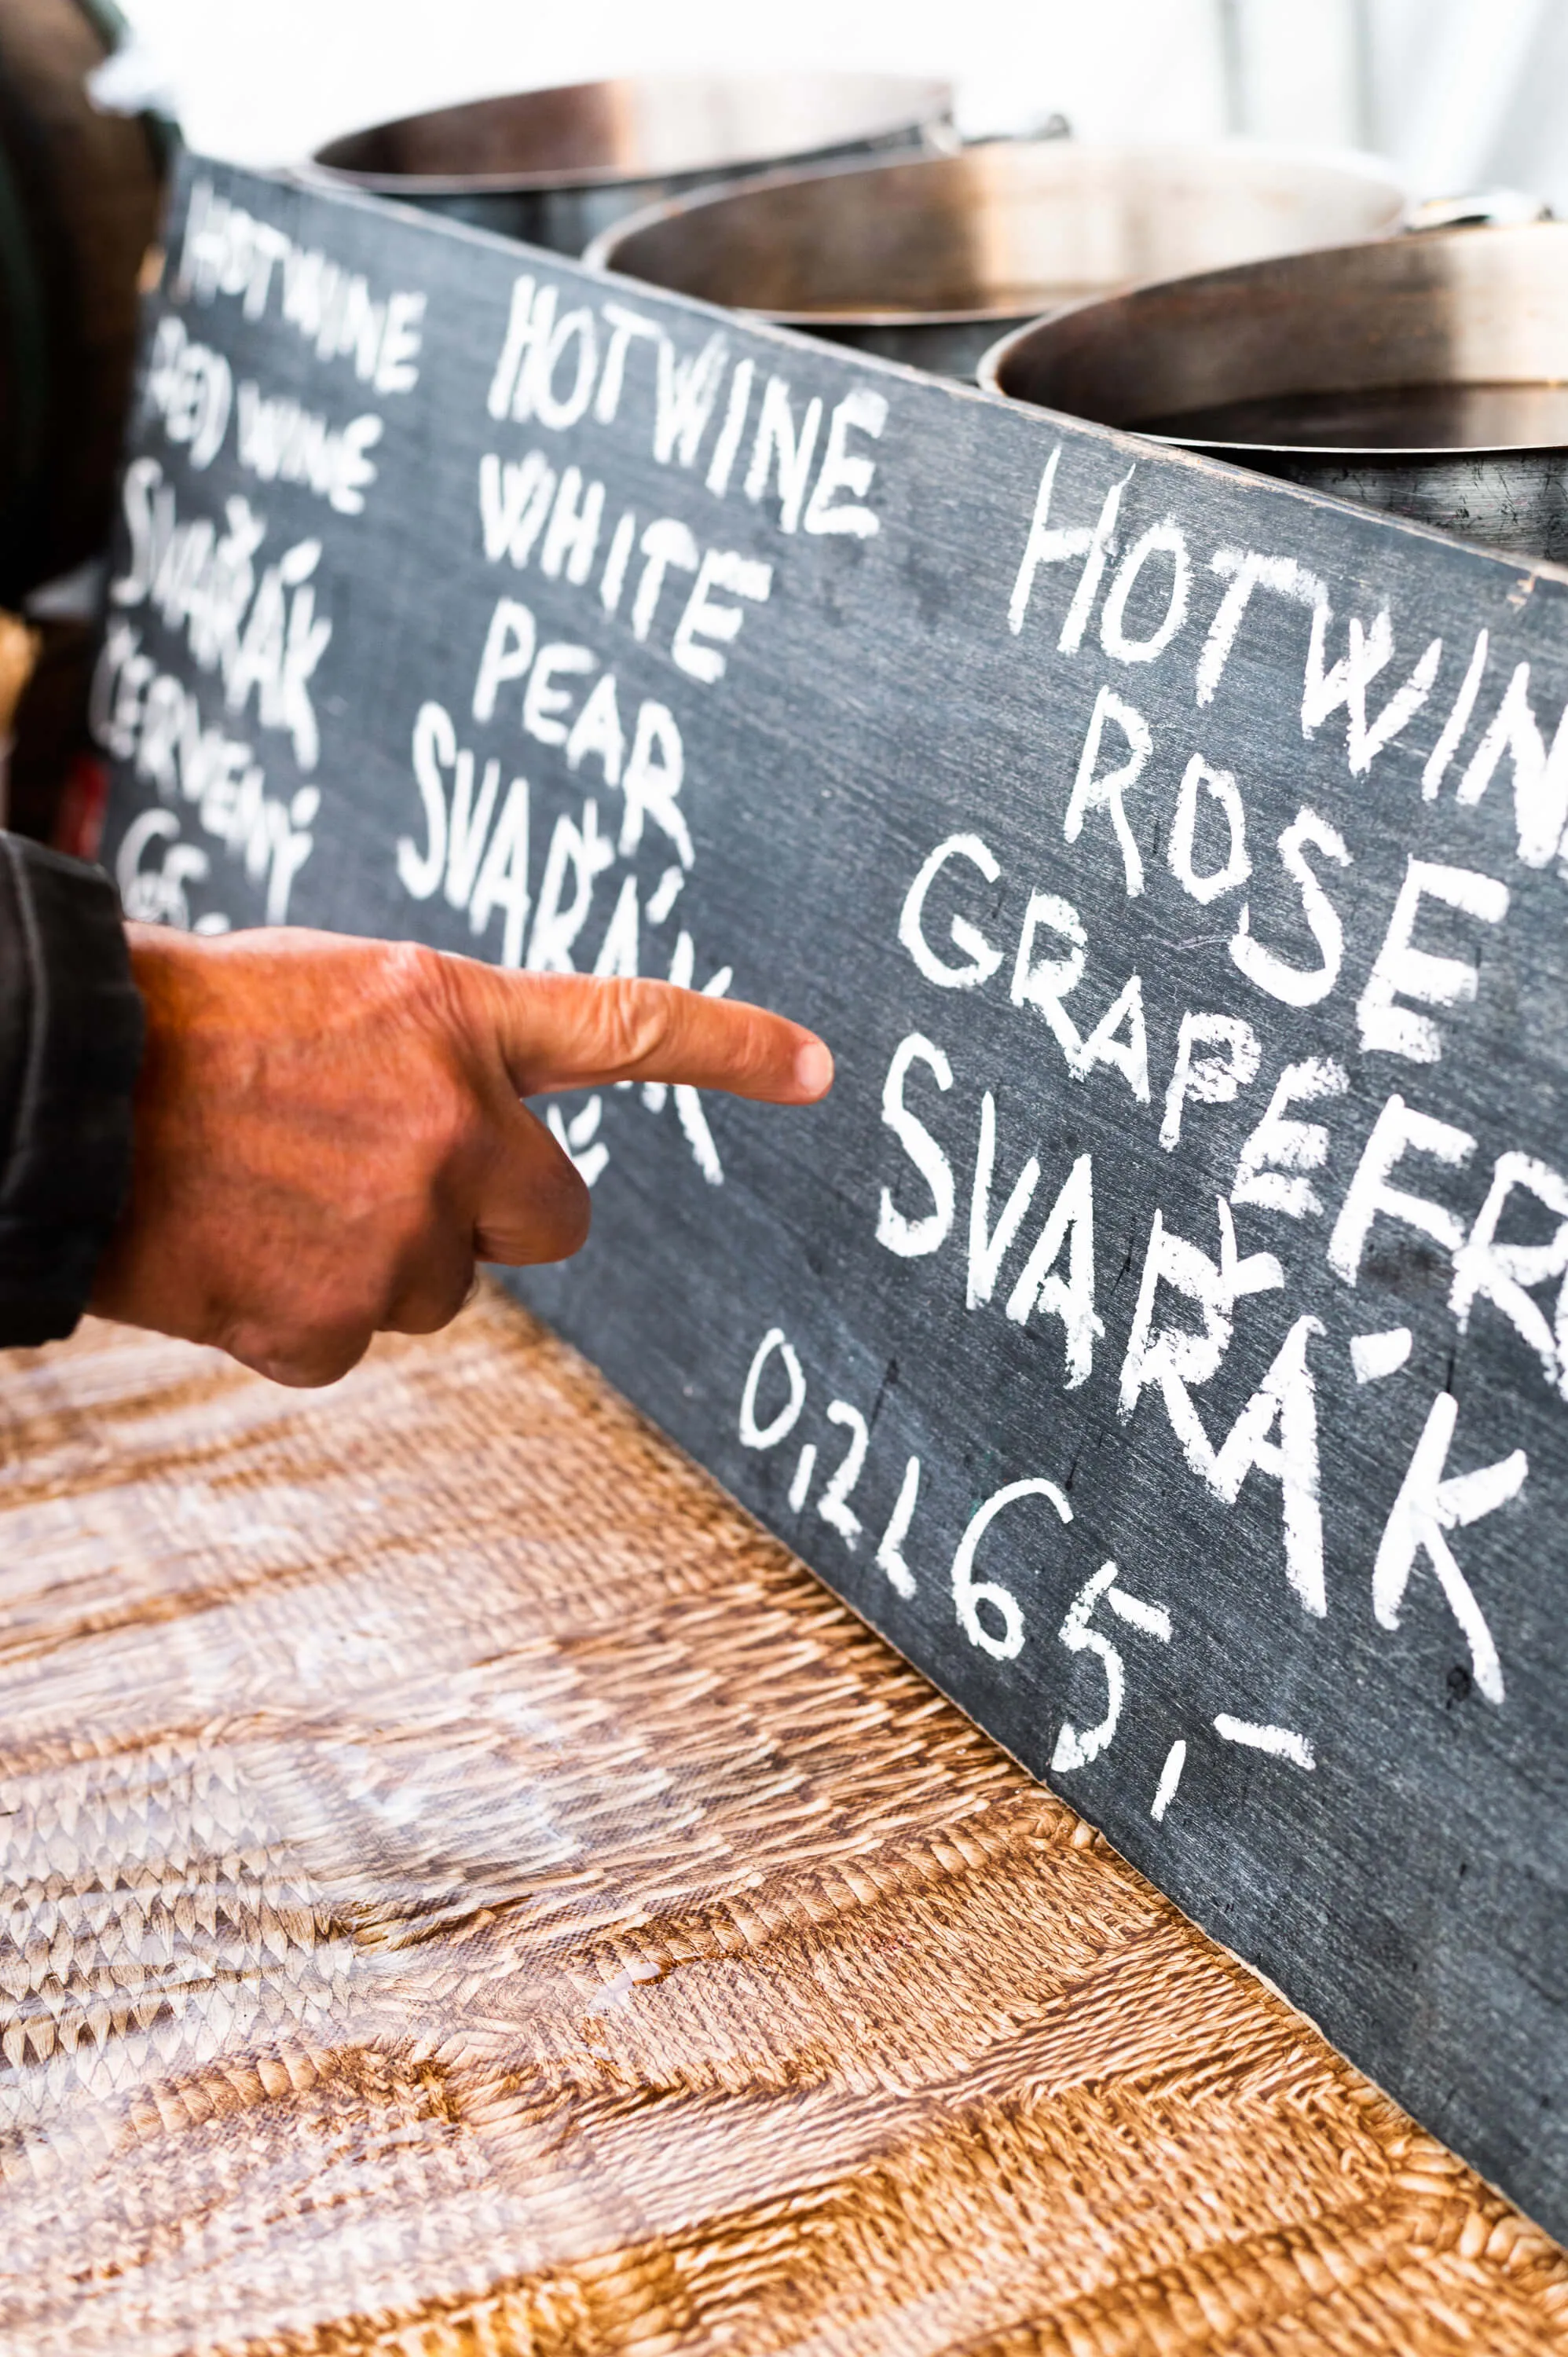 HOTWINE
RED WINE
SVAŘÁK
ČERVENÝ
HOTWINE
WHITE
PEAR
SVAŘÁK
HOTWIN
ROSE
GRAPEFR
SVAŘÁK
0,2L 65,-